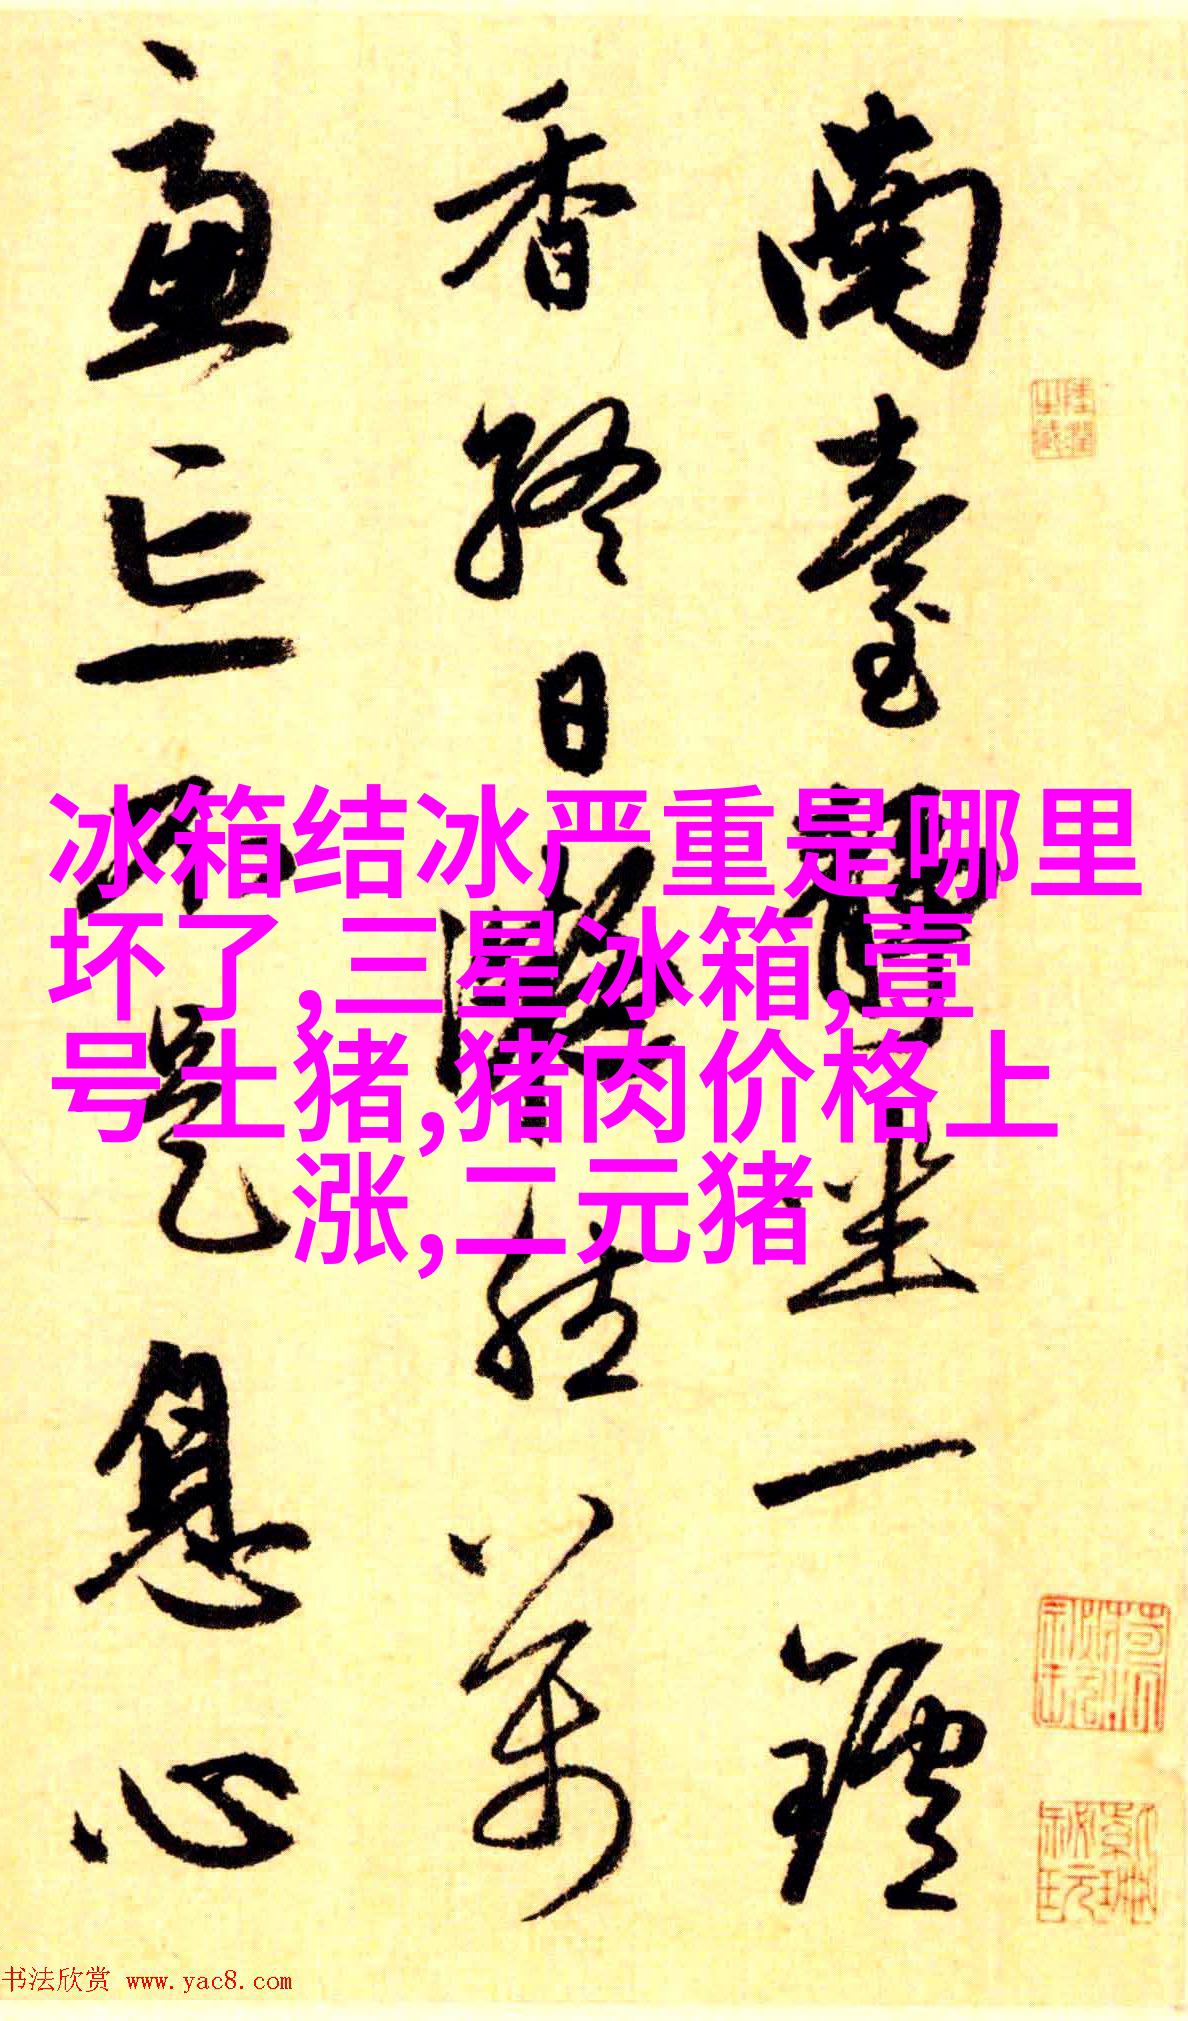 南臺靜坐一鑪
香終日凝然萬
慮亡不是息心
冰箱结冰严重是哪里
坏了,三星冰箱,壹
号土猪,猪肉价格上
涨,二元猪
书法欣赏 www.yac8.com